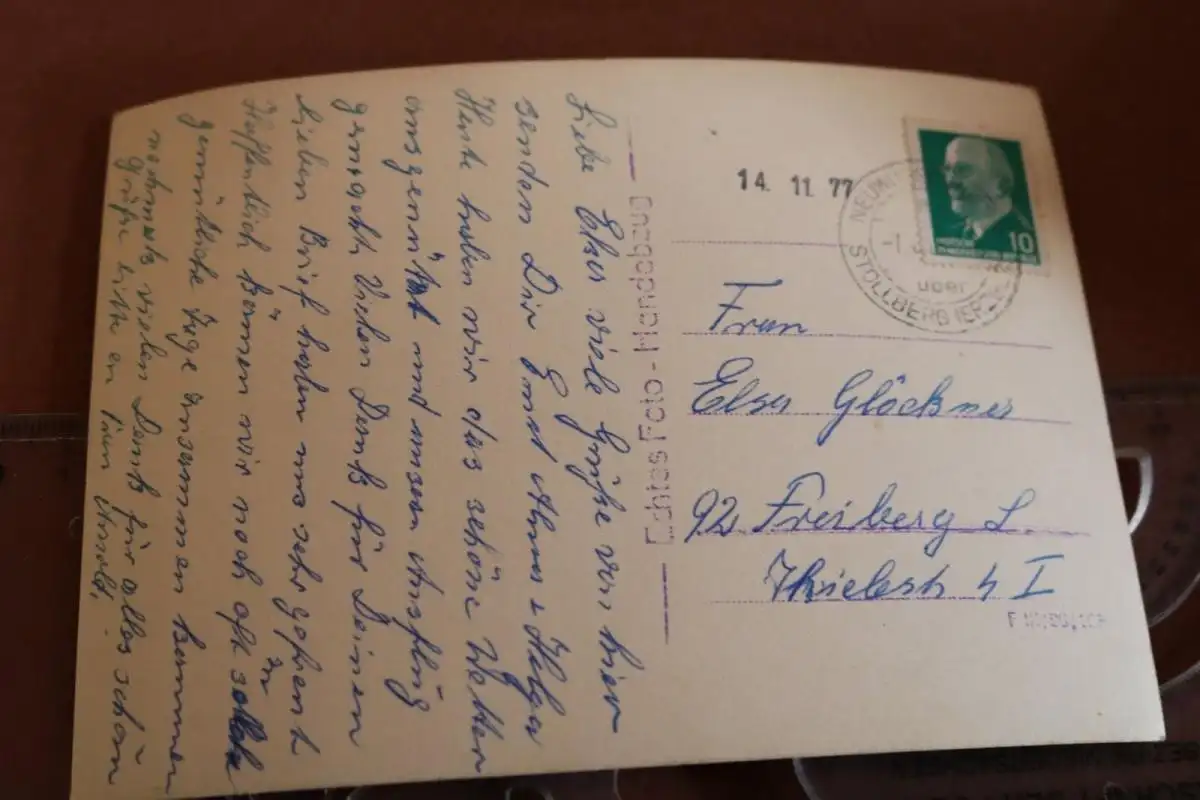 Liebe Elsa viele Grüße von hier
senden Dir Ernst Anna + Helga
Heute haben wir das schöne Wetter
ausgenützt und unsern Ausflug
gemacht. Vielen Dank für Deinen
lieben Brief haben uns sehr gefreut
Hoffentlich können wir noch oft
gemütliche Tage zusammen kommen
nochmals vielen Dank für alles schön
Grüße bitte
Echtes Foto - Handabzug
14. 11. 77
STOLLBERG (ERZ
über
10
Frau
Elsa Glöckner
92 Freiberg S.
4 I